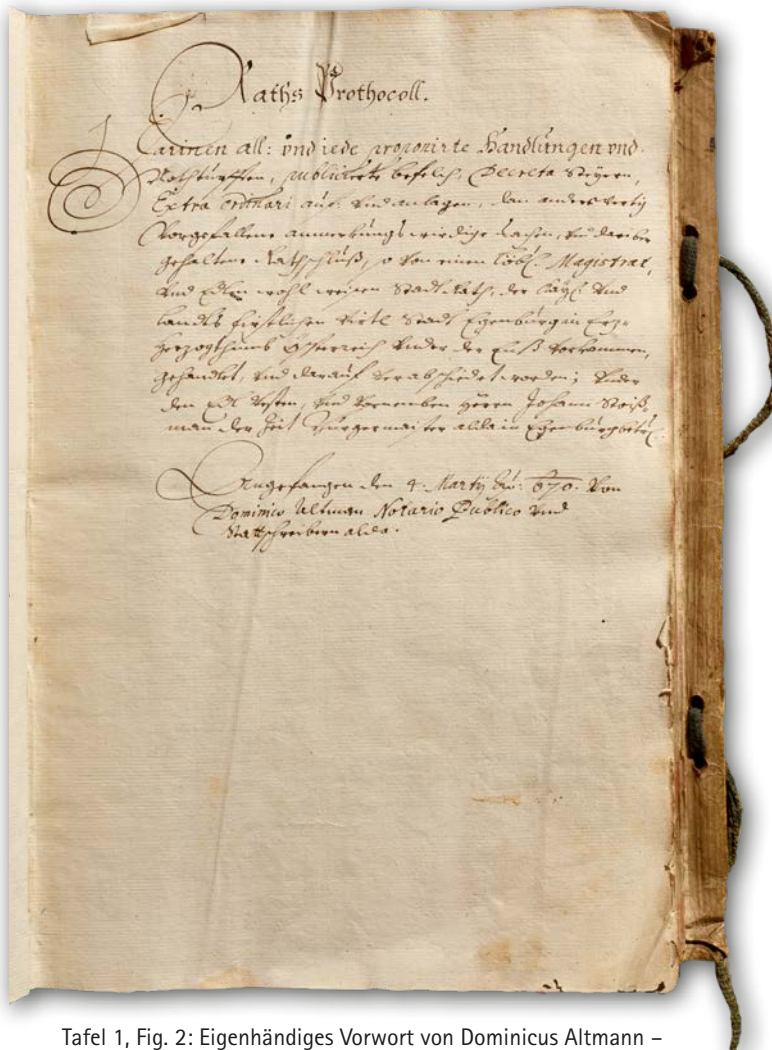 Raths Prothocoll.
Darinen all: vnd iede proponirte Handlungen vnd
Nothturfften, publicierte befelch, Decreta Steyern,
Extra Ordinari auf: vnd anlagen, dan anderwertig
Vorgefallene anmerkungs wirdige sachen, vnd dariber
gehaltene Rathschluß, so von einen löbl: Magistrat,
Vnd Edlen wohl weisen Stadt Rath, der Kayl: vnd
landts firstlichen Virtl Stadt Egenburg in Erz=
herzogthumb Össterreich Vnder der Enß vorkommen,
gehandlet, vnd darauf verabschiedet worden; Vnder
den Edl Vesten, vnd Vornemben Herrn Johann Stoiß
man der Zeit Burgermaister alda in Egenburg
Angefangen den 4. Martij Ao: 670. von
Dominico Altman Notario Publico vnd
Stattschreibern alda.
Tafel 1, Fig. 2: Eigenhändiges Vorwort von Dominicus Altmann –